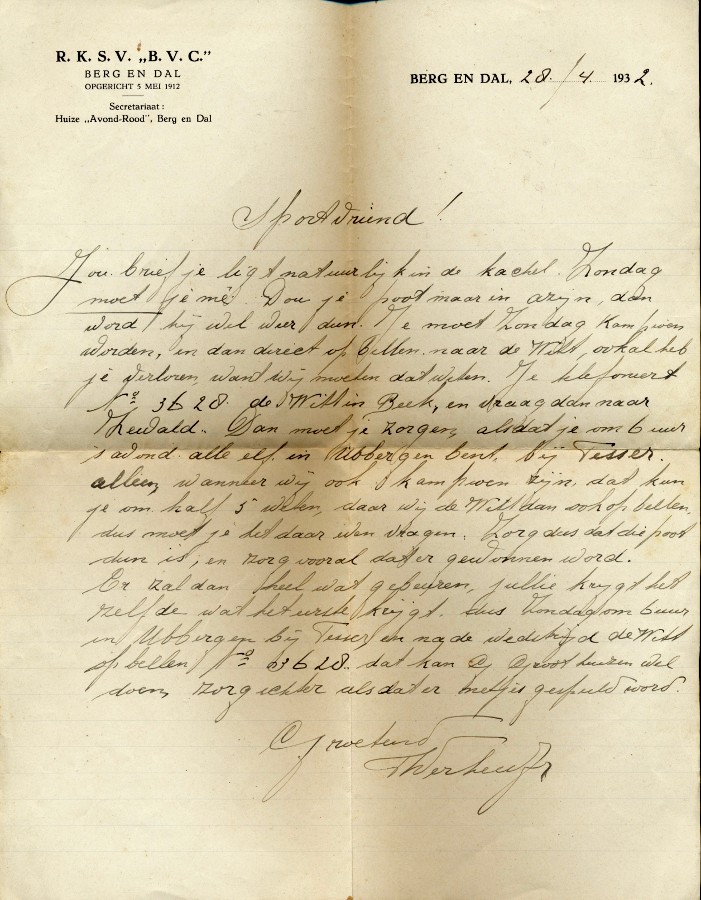 R. K. S. V. „B. V. C."
BERG EN DAL
OPGERICHT 5 MEI 1912
Secretariaat:
Huize „Avond-Rood", Berg en Dal
BERG EN DAL, 28/4. 1932.
Sportvriend!
Jou brief je ligt natuurlijk in de kachel. Zondag
moet je mê. Dou je poot maar in azyn, dan
word hij wel weer dun. Je moet Zondag Kampioen
worden, en dan direct op bellen naar de Witt, ook al heb
je verloren, want wij moeten dat weten. Je telefoneert
No 3628 de Witt in Beek, en vraag dan naar
Zewald. Dan moet je zorgen, alsdat je om 6 uur
s'avond alle elf in Ubbergen bent, bij Tesser.
alleen, wanneer wij ook kampioen zijn, dat kun
je om half 5 weten, daar wij de Witt dan ook op bellen,
dus moet je het daar even vragen. Zorg dus dat die poot
dun is, en zorg vooral dat er gewonnen word.
Er zal dan heel wat gebeuren, jullie krygt het
zelfde wat het eerste krijgt. dus Zondag om 6 uur
in Ubbergen bij Tesser, en na de wedstrijd de Witt
opbellen No 3628. dat kan G. Groothuizen wel
doen, zorg echter alsdat er netjes gespeeld word.
Groetend